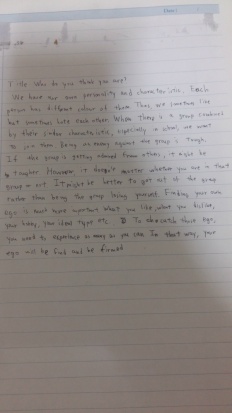 Title Who do you think you are?
We have our own personality and characteristic, Each
person has different colour of them Thus, we sometimes like
but sometimes hate each other. When there is a group combined
by their similar characteristic, especially in school, we want
to join them Being an enemy against the group is tough.
If the group is getting admired from others, it might be
tougher However, it doesn't matter whether you are in that
group or not. It might be better to get out of the group
rather than being the group losing yourself Finding your own
ego is much more important What you like, what you dislike,
your habit, your ideal type etc. To catch those ego,
you need to experience as many as you can In that way, your
ego will be find and be formed